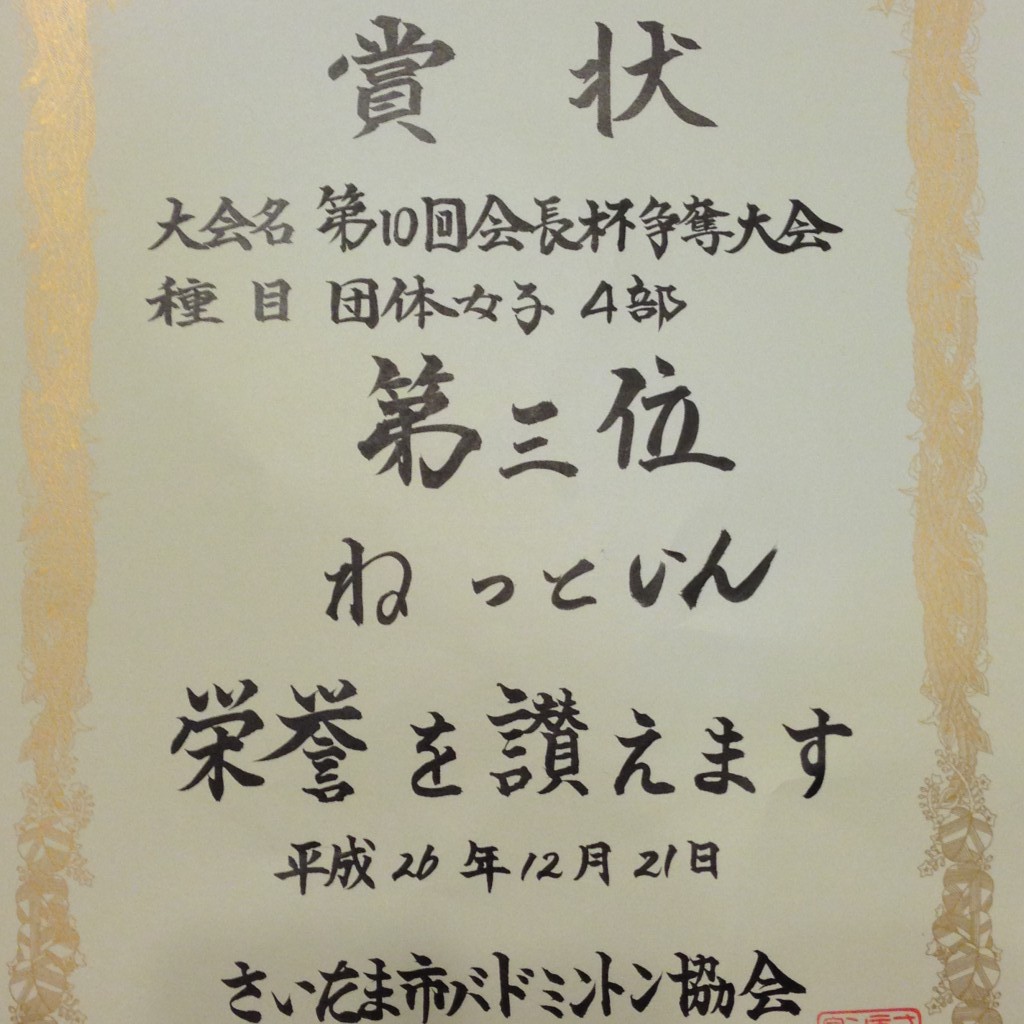 賞状
大会名 第10回会長杯争奪大会
種目 団体女子 4部
第三位
ねっといん
栄誉を讃えます
平成26年12月21日
さいたま市バドミントン協会